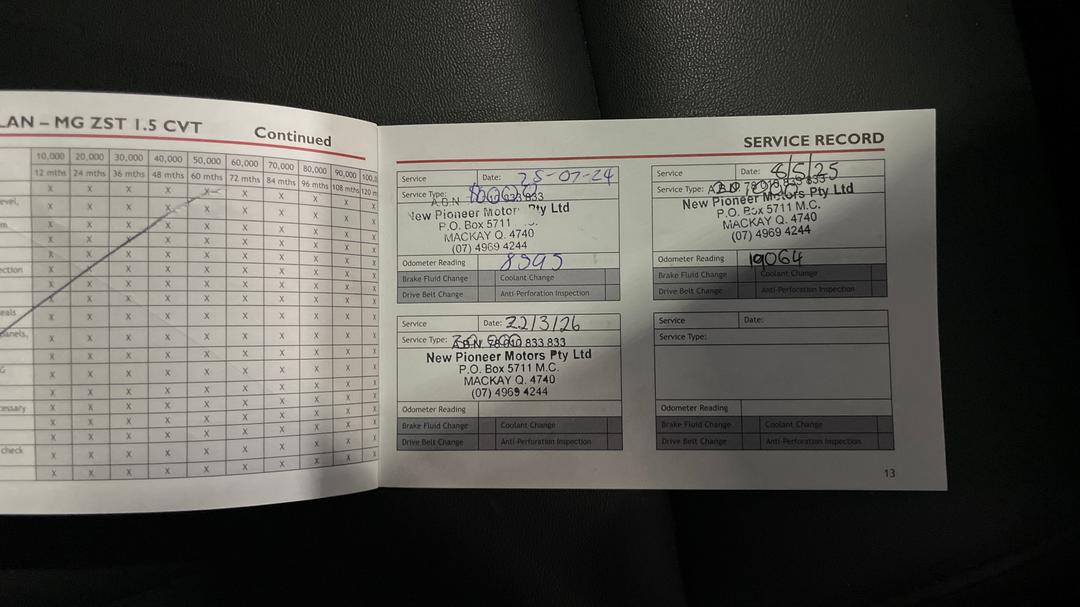 LAN – MG ZST 1.5 CVT
Continued
10,000 20,000 30,000 40,000 50,000 60,000 70,000 80,000 90,000 100,0
12 mths 24 mths 36 mths 48 mths 60 mths 72 mths 84 mths 96 mths 108 mths 120 m
evel,
m
ection
eals
panels,
G
cessary
check
SERVICE RECORD
Service Date: 25-07-24
Service Type: 10000
A.B.N. 833
New Pioneer Motors Pty Ltd
P.O. Box 5711
MACKAY Q. 4740
(07) 4969 4244
Odometer Reading 8595
Brake Fluid Change Coolant Change
Drive Belt Change Anti-Perforation Inspection
Service Date: 8/5/25
Service Type: A.B.N. 78 010 833 833
New Pioneer Motors Pty Ltd
P.O. Box 5711 M.C.
MACKAY Q. 4740
(07) 4969 4244
Odometer Reading 19064
Brake Fluid Change Coolant Change
Drive Belt Change Anti-Perforation Inspection
Service Date: 22/3/26
Service Type: 30,000
A.B.N. 78 010 833 833
New Pioneer Motors Pty Ltd
P.O. Box 5711 M.C.
MACKAY Q. 4740
(07) 4969 4244
Odometer Reading
Brake Fluid Change Coolant Change
Drive Belt Change Anti-Perforation Inspection
Service Date:
Service Type:
Odometer Reading
Brake Fluid Change Coolant Change
Drive Belt Change Anti-Perforation Inspection
13